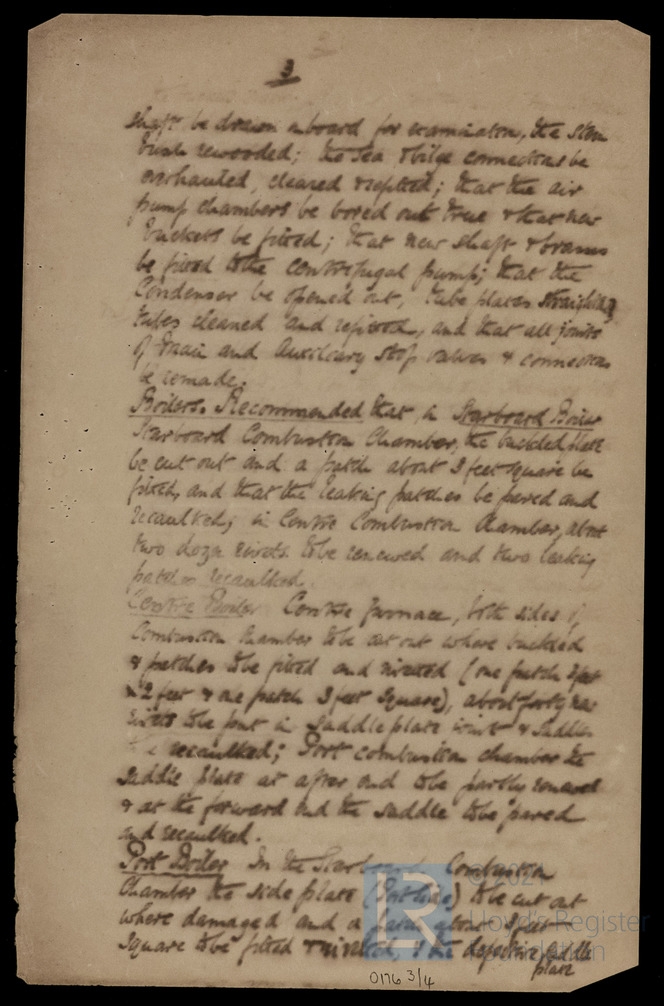 3
shaft be drawn inboard for examination, the stern
bush rewooded; the sea & bilge connections be
overhauled, cleared & refitted; that the air
pump chambers be bored out true & that new
buckets be fitted; that new shaft & brasses
be fitted to the centrifugal pump; that the
Condenser be opened out, tube plates straightened
tubes cleaned and refitted, and that all joints
of main and auxiliary stop valves & connections
be remade.
Boilers. Recommended that, in Starboard Boiler
Starboard Combustion Chamber, the buckled plate
be cut out and a patch about 3 feet square be
fitted, and that the leaking patches be pared and
recaulked; in Centre Combustion Chamber, about
two dozn rivets to be renewed and two leaking
patches recaulked.
Centre Boiler Centre furnace, both sides of
Combustion chamber to be cut out where buckled
& patches to be fitted and riveted (one patch 3 feet
x 2 feet & one patch 3 feet square), about forty new
rivets to be put in saddle plate & saddle
recaulked; Port combustion chamber the
saddle plate at after end to be partly renewed
& at the forward end the saddle to be pared
and recaulked.
Port Boiler In the Starboard Combustion
Chamber the side plate to be cut out
where damaged and a patch about 3 feet
square to be fitted & riveted, & the defective saddle
plate
© 2021
LR
Lloyd's Register
Foundation
0176 3/4